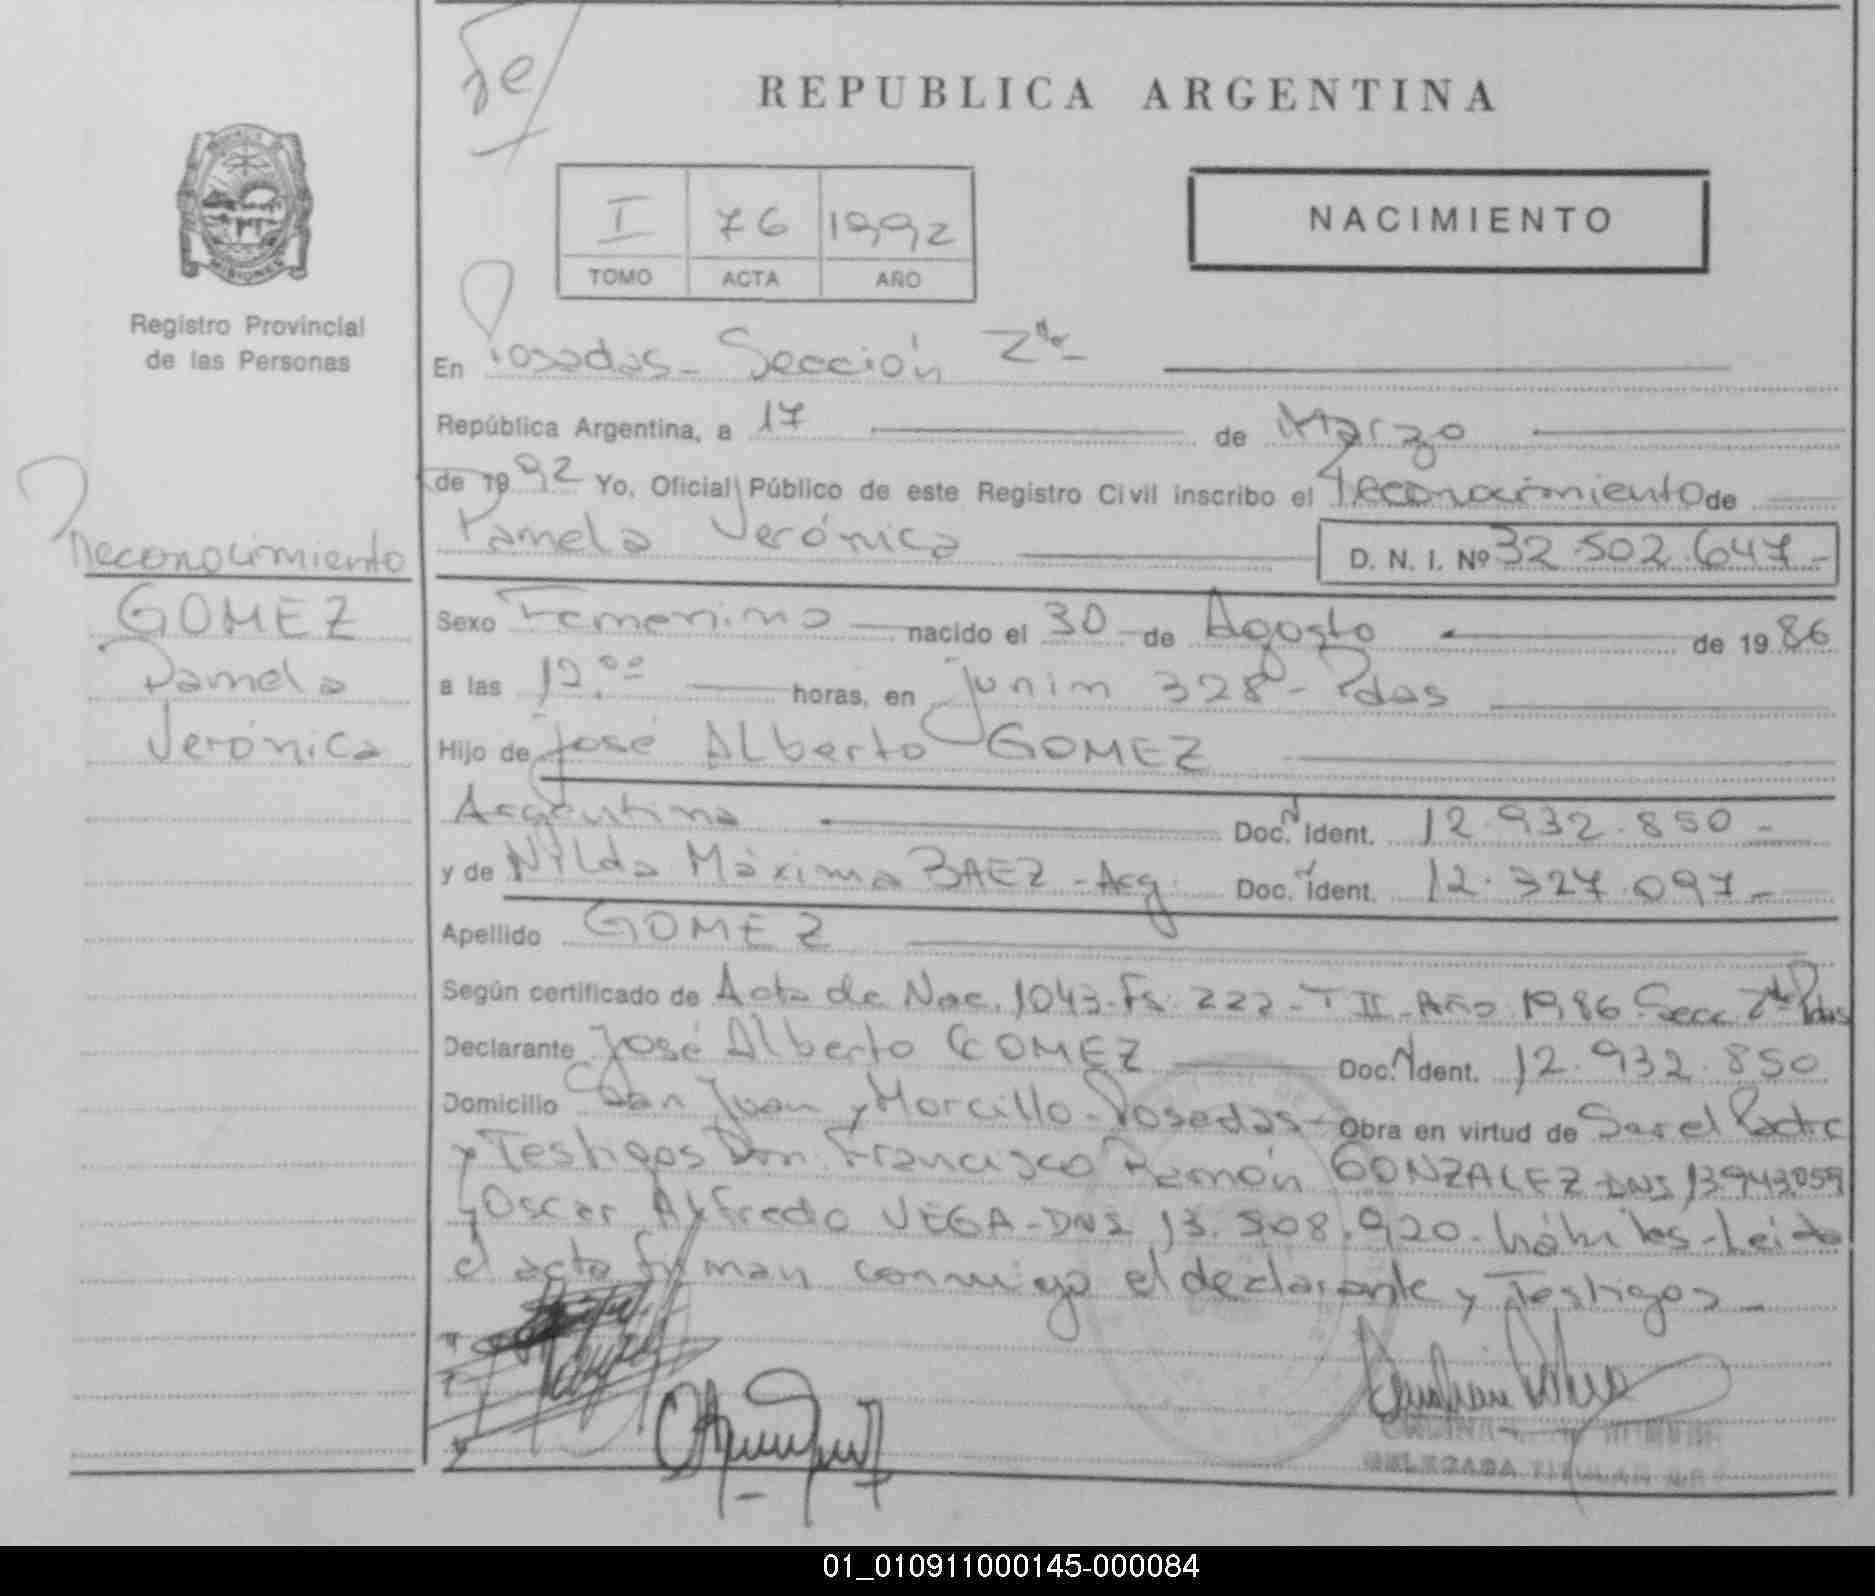 REPUBLICA ARGENTINA
I 76 1992
TOMO ACTA AÑO
NACIMIENTO
MISIONES
Registro Provincial
de las Personas
Reconocimiento
GOMEZ
Pamela
Verónica
En Posadas - Sección 2da -
República Argentina, a 17 de Marzo
de 1992 Yo, Oficial Público de este Registro Civil inscribo el reconocimiento de
Pamela Verónica D. N. I. Nº 32.502.647 -
Sexo Femenino nacido el 30 de Agosto de 1986
a las 12.00 horas, en Junin 328 - Pdas
Hijo de José Alberto GOMEZ
Argentina Doc. Ident. 12.932.850 -
y de Nilda Máxima BAEZ - Arg. Doc. Ident. 12.327.097 -
Apellido GOMEZ
Según certificado de Acta de Nac. 1043 - Fs. 222 - T II - Año 1986 - Secc 2da Pdas
Declarante José Alberto GOMEZ Doc. Ident. 12.932.850
Domicilio San Juan y Morcillo - Posadas - Obra en virtud de Ser el Padre
y Testigos Don Francisco Ramón GONZALEZ - DNI 13943.059
y Oscar Alfredo VEGA - DNI 13.508.920 - hábiles - Leida
el acta firman conmigo el declarante y Testigos -
DELEGADA TITULAR
01_010911000145-000084